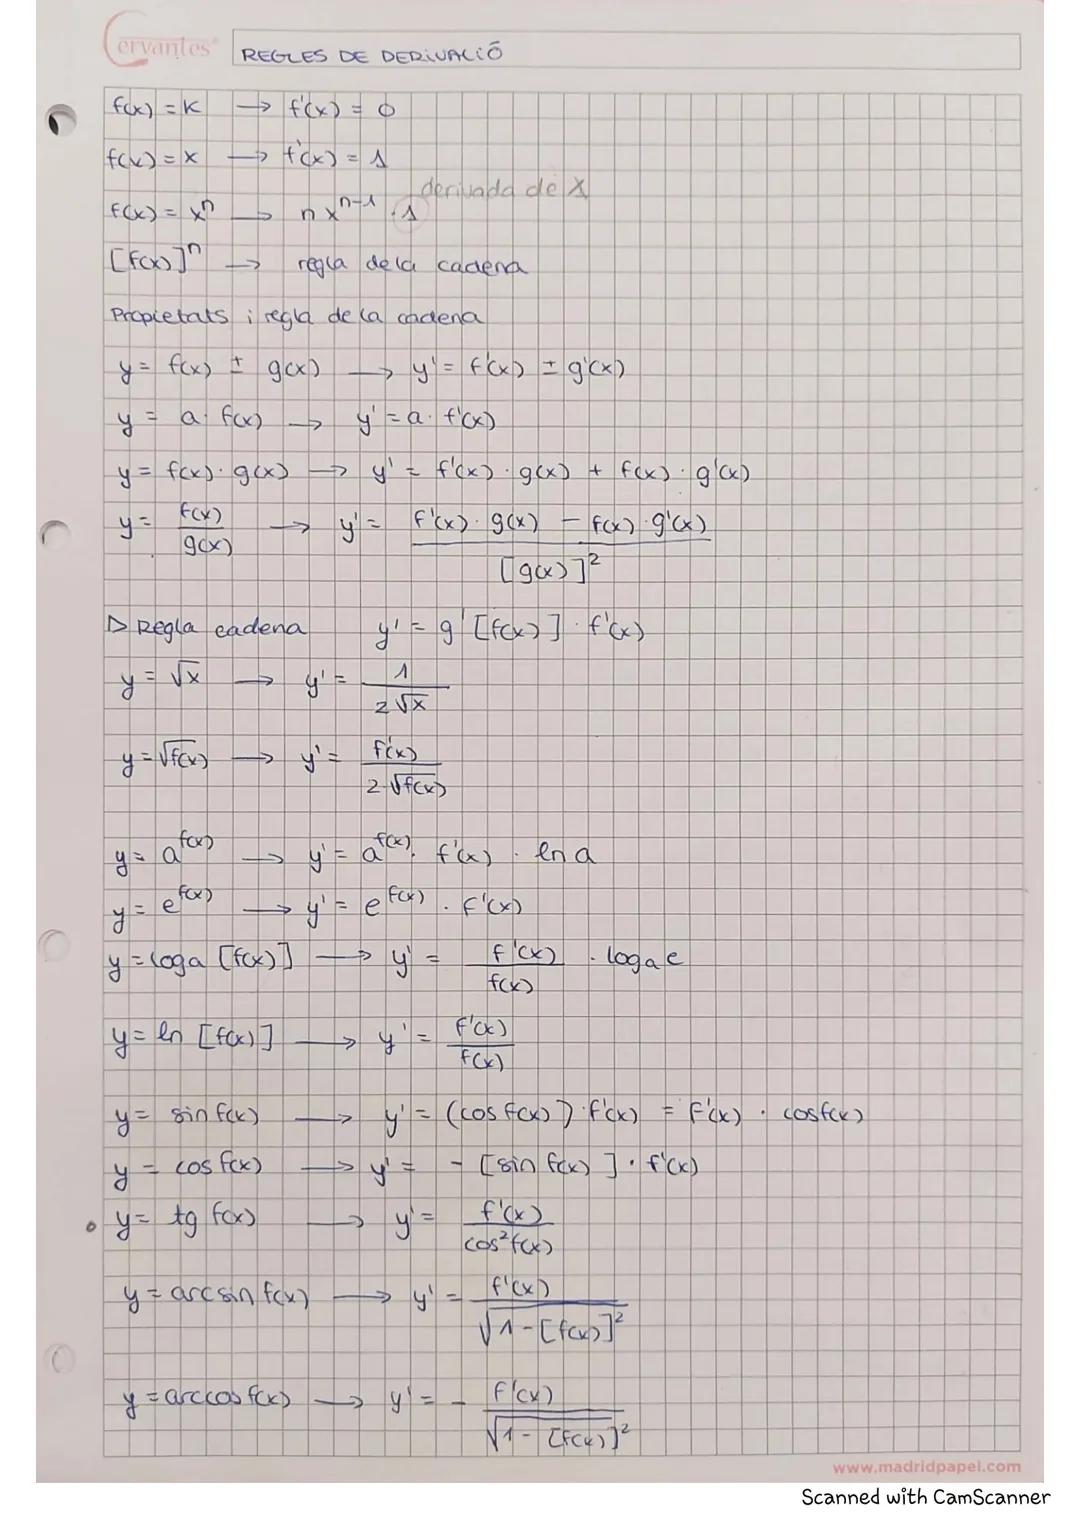 Cervantes
REGLES DE DERIVACIÓ
f(x) = K → f'(x) = 0
f(x) = x → f'(x) = 1
derivada de x
f(x) = xⁿ → n xⁿ⁻¹ · 1
[f(x)]ⁿ → regla de la cadena
Propietats i regla de la cadena
y = f(x) ± g(x) → y' = f'(x) ± g'(x)
y = a · f(x) → y' = a · f'(x)
y = f(x) · g(x) → y' = f'(x) · g(x) + f(x) · g'(x)
y = f(x)/g(x) → y' = (f'(x) · g(x) - f(x) · g'(x))/[g(x)]²
▷ Regla cadena y' = g' [f(x)] · f'(x)
y = √x → y' = 1/(2√x)
y = √f(x) → y' = f'(x)/(2·√f(x))
y = a^f(x) → y' = a^f(x) · f'(x) · ln a
y = e^f(x) → y' = e^f(x) · f'(x)
y = loga [f(x)] → y' = f'(x)/f(x) · logae
y = ln [f(x)] → y' = f'(x)/f(x)
y = sin f(x) → y' = (cos f(x)) · f'(x) = f'(x) · cosf(x)
y = cos f(x) → y' = - [sin f(x)] · f'(x)
y = tg f(x) → y' = f'(x)/cos²f(x)
y = arcsin f(x) → y' = f'(x)/√(1-[f(x)]²)
y = arccos f(x) → y' = - f'(x)/√(1-[f(x)]²)
www.madridpapel.com
Scanned with CamScanner